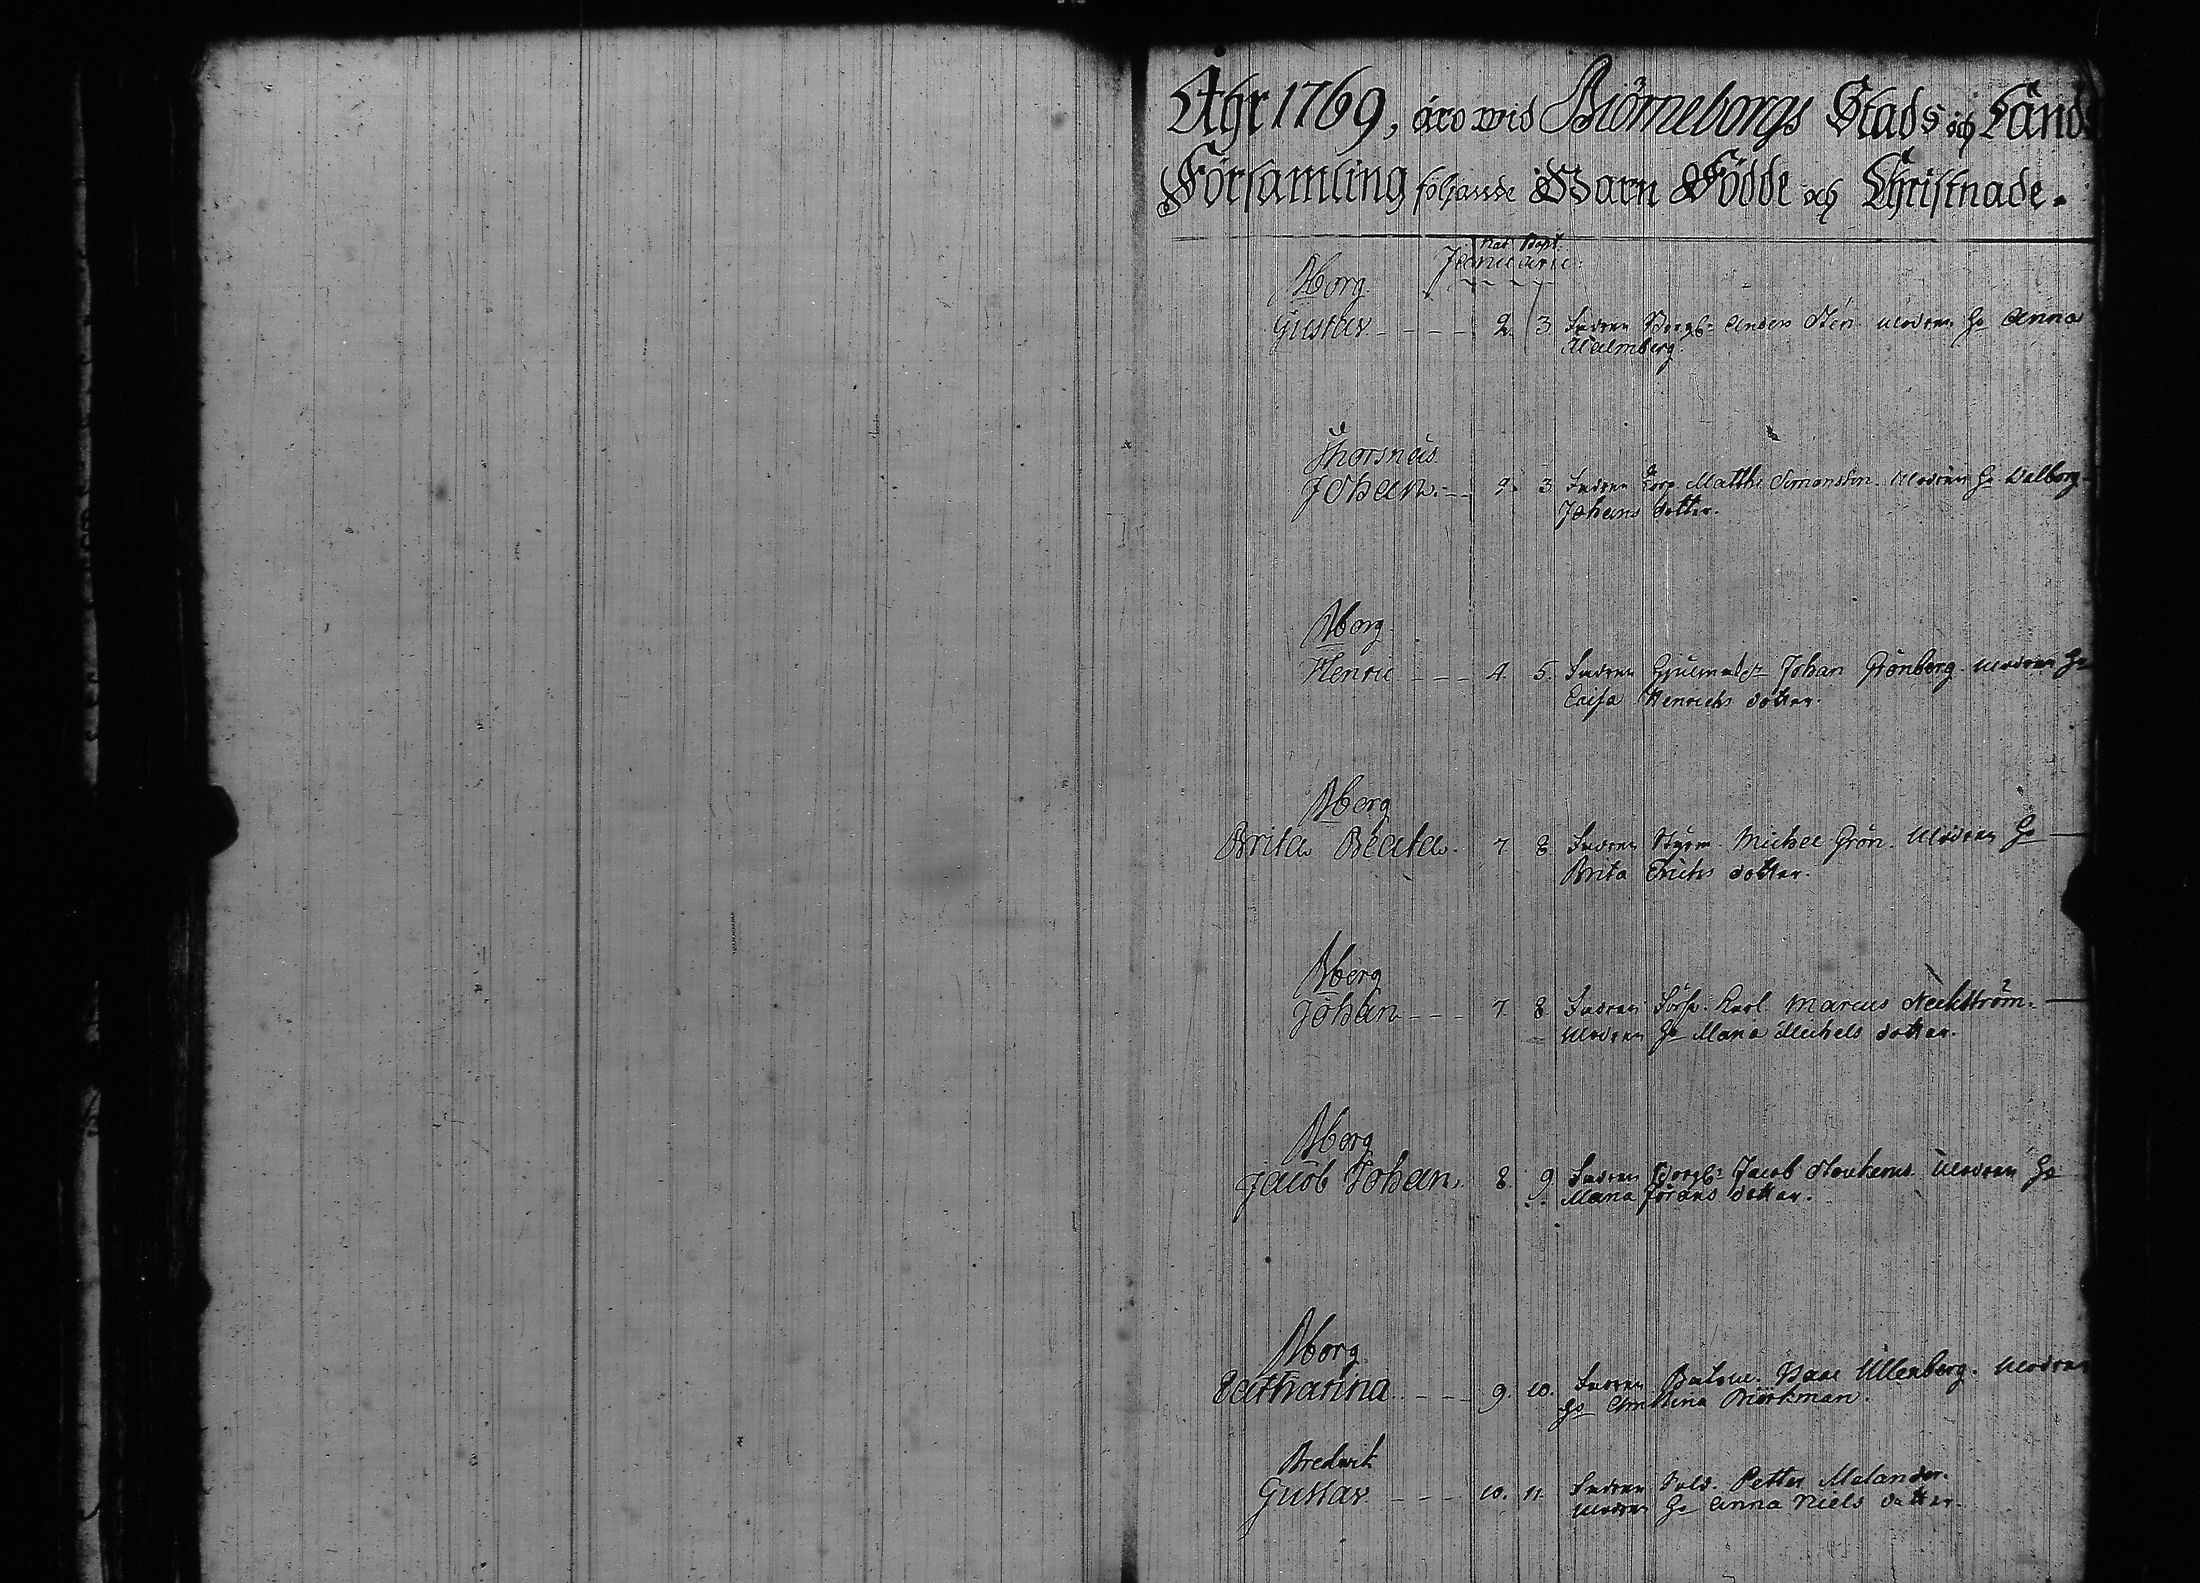 Åhr 1769, äro wid Biörneborgs Stads och Land
Församling följande Barn Födde och Christnade.
Nat Bapt.
Januarii.
Bborg
Gustav 2. 3 Fadren Borg: Anders Stén Modren H: Anna
Malmberg.
Thorsnäs
Johan 2. 3. Fadren Torp. Matths Simonsson. Modren H: Walborg
Johans dotter.
Bborg
Henric 4. 5. Fadren Johan Grönberg. Modren H:
Caisa Henrichs dotter.
Bborg
Brita Beata. 7 8 Fadren Styrm. Michel Grön. Modren H:
Brita Erichs dotter.
Bborg
Johan 7. 8. Fadren Karl. Marcus Neckström.
Modren H: Maria Michels dotter.
Bborg
Jacob Johan. 8 9 Fadren Borg: Jacob Modren H:
Maria Jörans dotter.
Bborg
Catharina 9. 10. Fadren Isaac Ullenberg. Modren
H: Christina Biörkman.
Bredwik
Gustav 10. 11. Fadren Sold. Petter Melander.
Modren H: Anna Niels dotter.